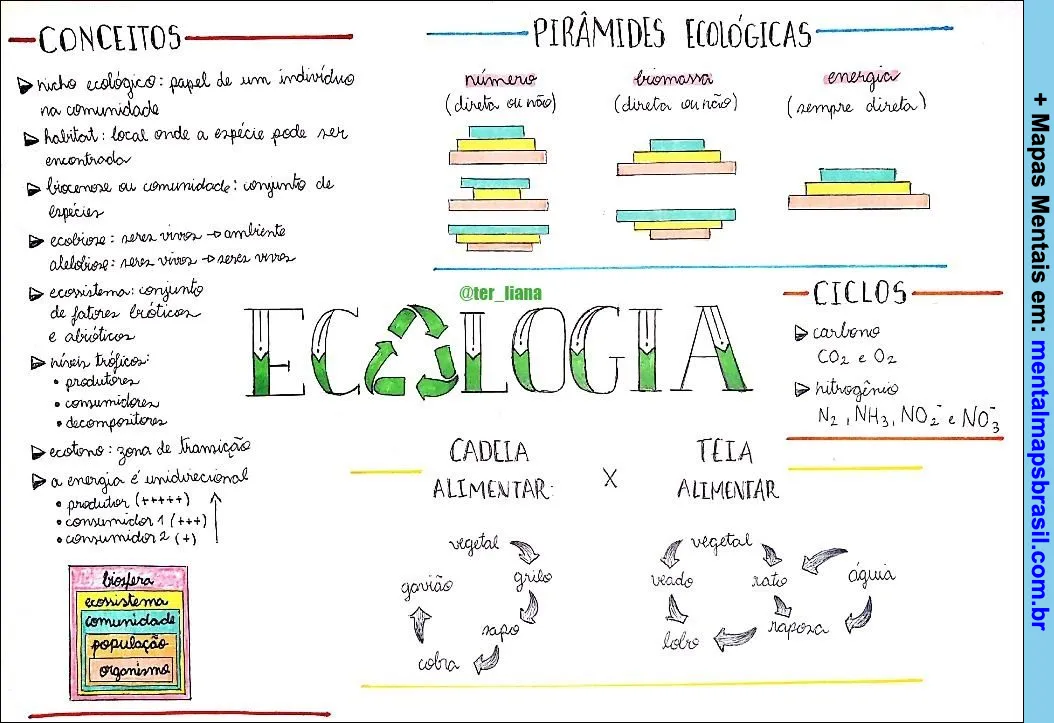 CONCEITOS
nicho ecológico: papel de um indivíduo
na comunidade
habitat: local onde a espécie pode ser
encontrada
biocenose ou comunidade: conjunto de
espécies
ecobiose: seres vivos → ambiente
alelobiose: seres vivos → seres vivos
ecossistema: conjunto
de fatores bióticos
e abióticos
níveis tróficos:
• produtores
• consumidores
• decompositores
ecotono: zona de transição
a energia é unidirecional
• produtor (+++++)
• consumidor 1 (+++)
• consumidor 2 (+)
biosfera
ecossistema
comunidade
população
organismo
PIRÂMIDES ECOLÓGICAS
número
(direta ou não)
biomassa
(direta ou não)
energia
(sempre direta)
@ter_liana
ECOLOGIA
CICLOS
carbono
CO₂ e O₂
nitrogênio
N₂, NH₃, NO₂⁻ e NO₃⁻
CADEIA
ALIMENTAR:
X
TEIA
ALIMENTAR
vegetal
grilo
sapo
cobra
gavião
vegetal
veado
rato
águia
raposa
lobo
+ Mapas Mentais em: mentalmapsbrasil.com.br